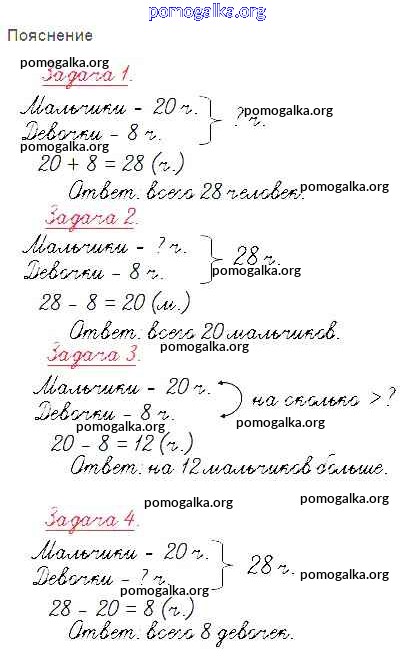 pomogalka.org
Пояснение
pomogalka.org
Задача 1.
Мальчики - 20 ч.
pomogalka.org
? ч.
Девочки - 8 ч.
pomogalka.org
20 + 8 = 28 (ч.)
Ответ: всего 28 человек.
pomogalka.org
Задача 2.
pomogalka.org
Мальчики - ? ч.
28 ч.
Девочки - 8 ч.
pomogalka.org
28 - 8 = 20 (м.)
Ответ: всего 20 мальчиков.
pomogalka.org
Задача 3.
Мальчики - 20 ч.
на сколько > ?
Девочки - 8 ч.
pomogalka.org
pomogalka.org
20 - 8 = 12 (ч.)
Ответ: на 12 мальчиков больше.
pomogalka.org
pomogalka.org
Задача 4.
Мальчики - 20 ч.
28 ч.
pomogalka.org
Девочки - ? ч.
pomogalka.org
28 - 20 = 8 (ч.)
Ответ: всего 8 девочек.